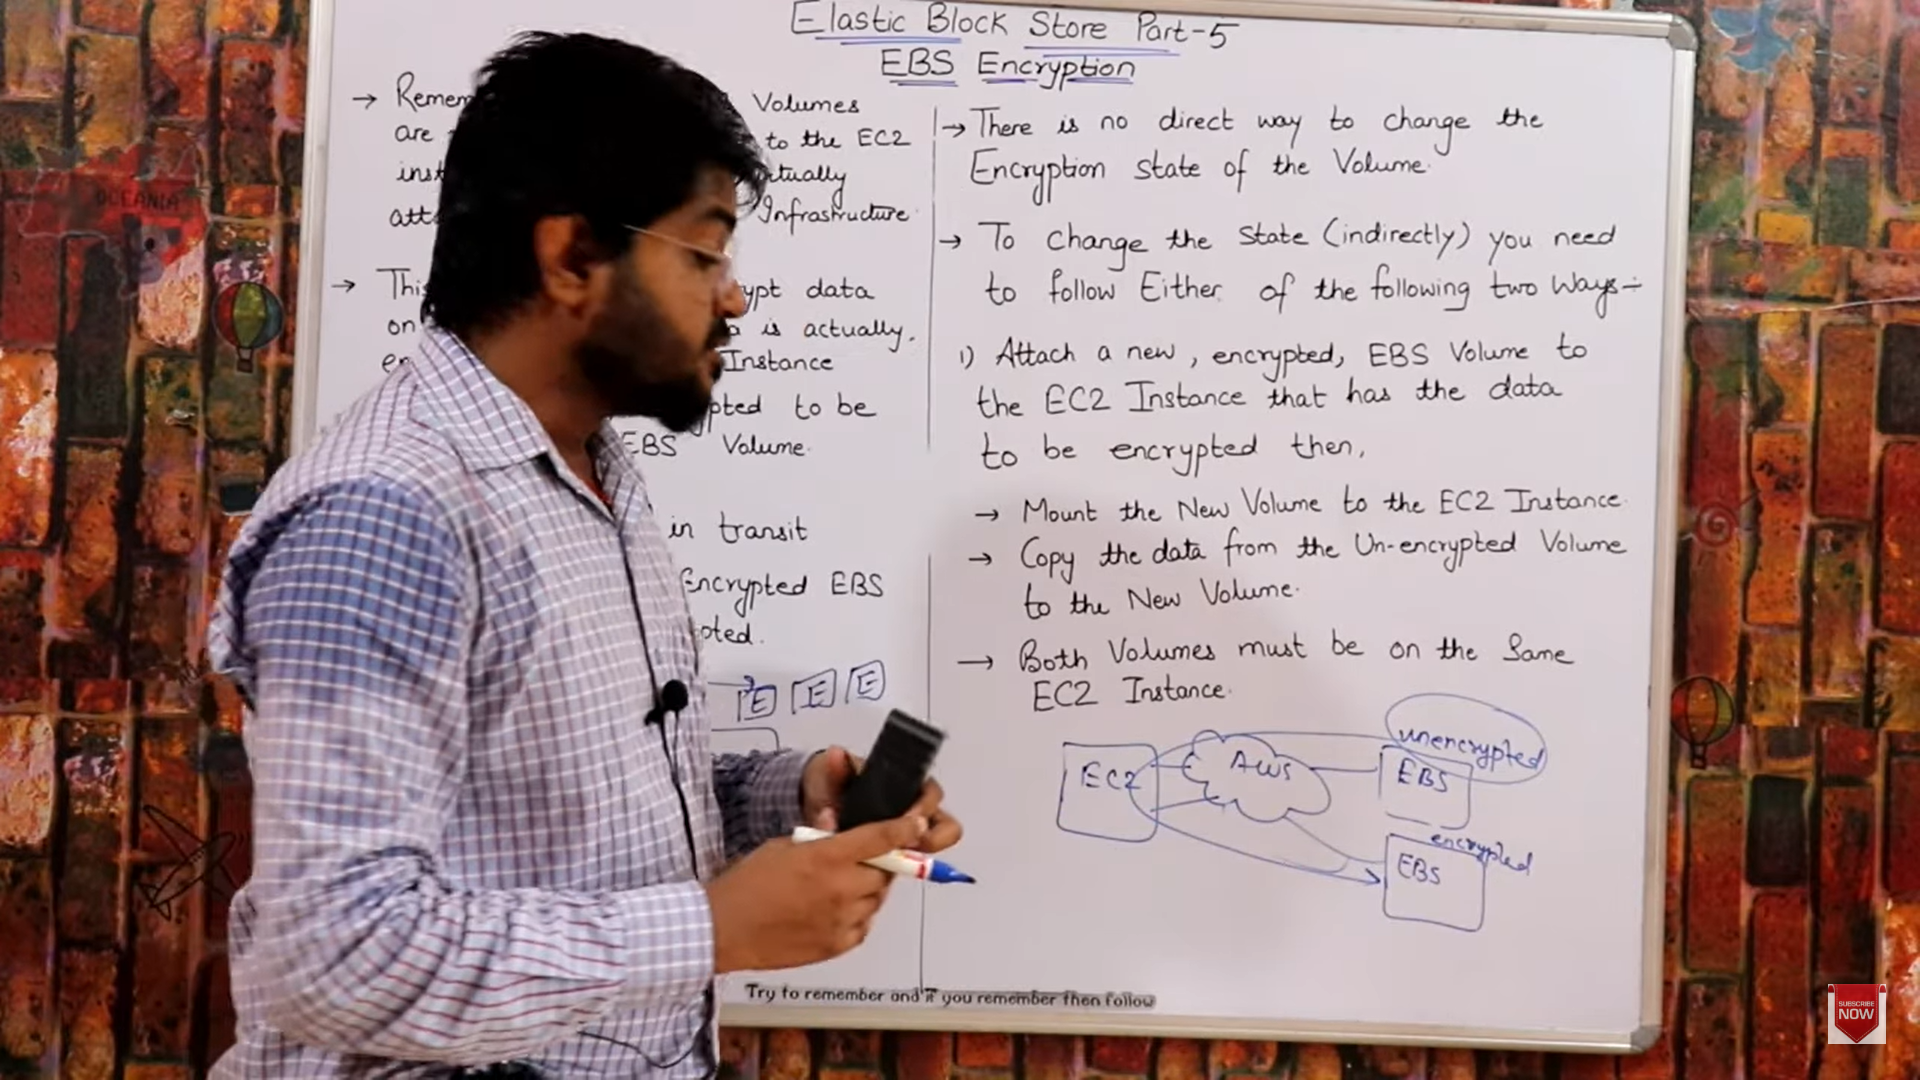 Elastic Block Store Part-5
EBS Encryption
→ Volumes
are to the EC2
att Infrastructure
→ data
on is actually,
Instance
to be
EBS Volume.
in transit
Encrypted EBS
E E E
→ There is no direct way to change the
Encryption state of the Volume.
→ To change the State (indirectly) you need
to follow Either of the following two Ways:-
1) Attach a new, encrypted, EBS Volume to
the EC2 Instance that has the data
to be encrypted then,
→ Mount the New Volume to the EC2 Instance.
→ Copy the data from the Un-encrypted Volume
to the New Volume.
→ Both Volumes must be on the Same
EC2 Instance.
unencrypted
EC2 AWS EBS
encrypted
EBS
Try to remember and if you remember then follow
OCEANIA
SUBSCRIBE
NOW